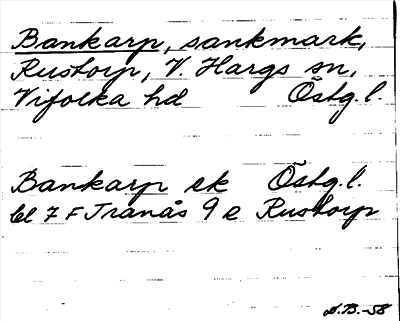 Bankarp, sankmark,
Rustorp, V. Hargs sn,
Vifolka hd Östg.l.
Bankarp ek Östg.l.
bl 7 F Tranås 9 e Rustorp
A.B.-58